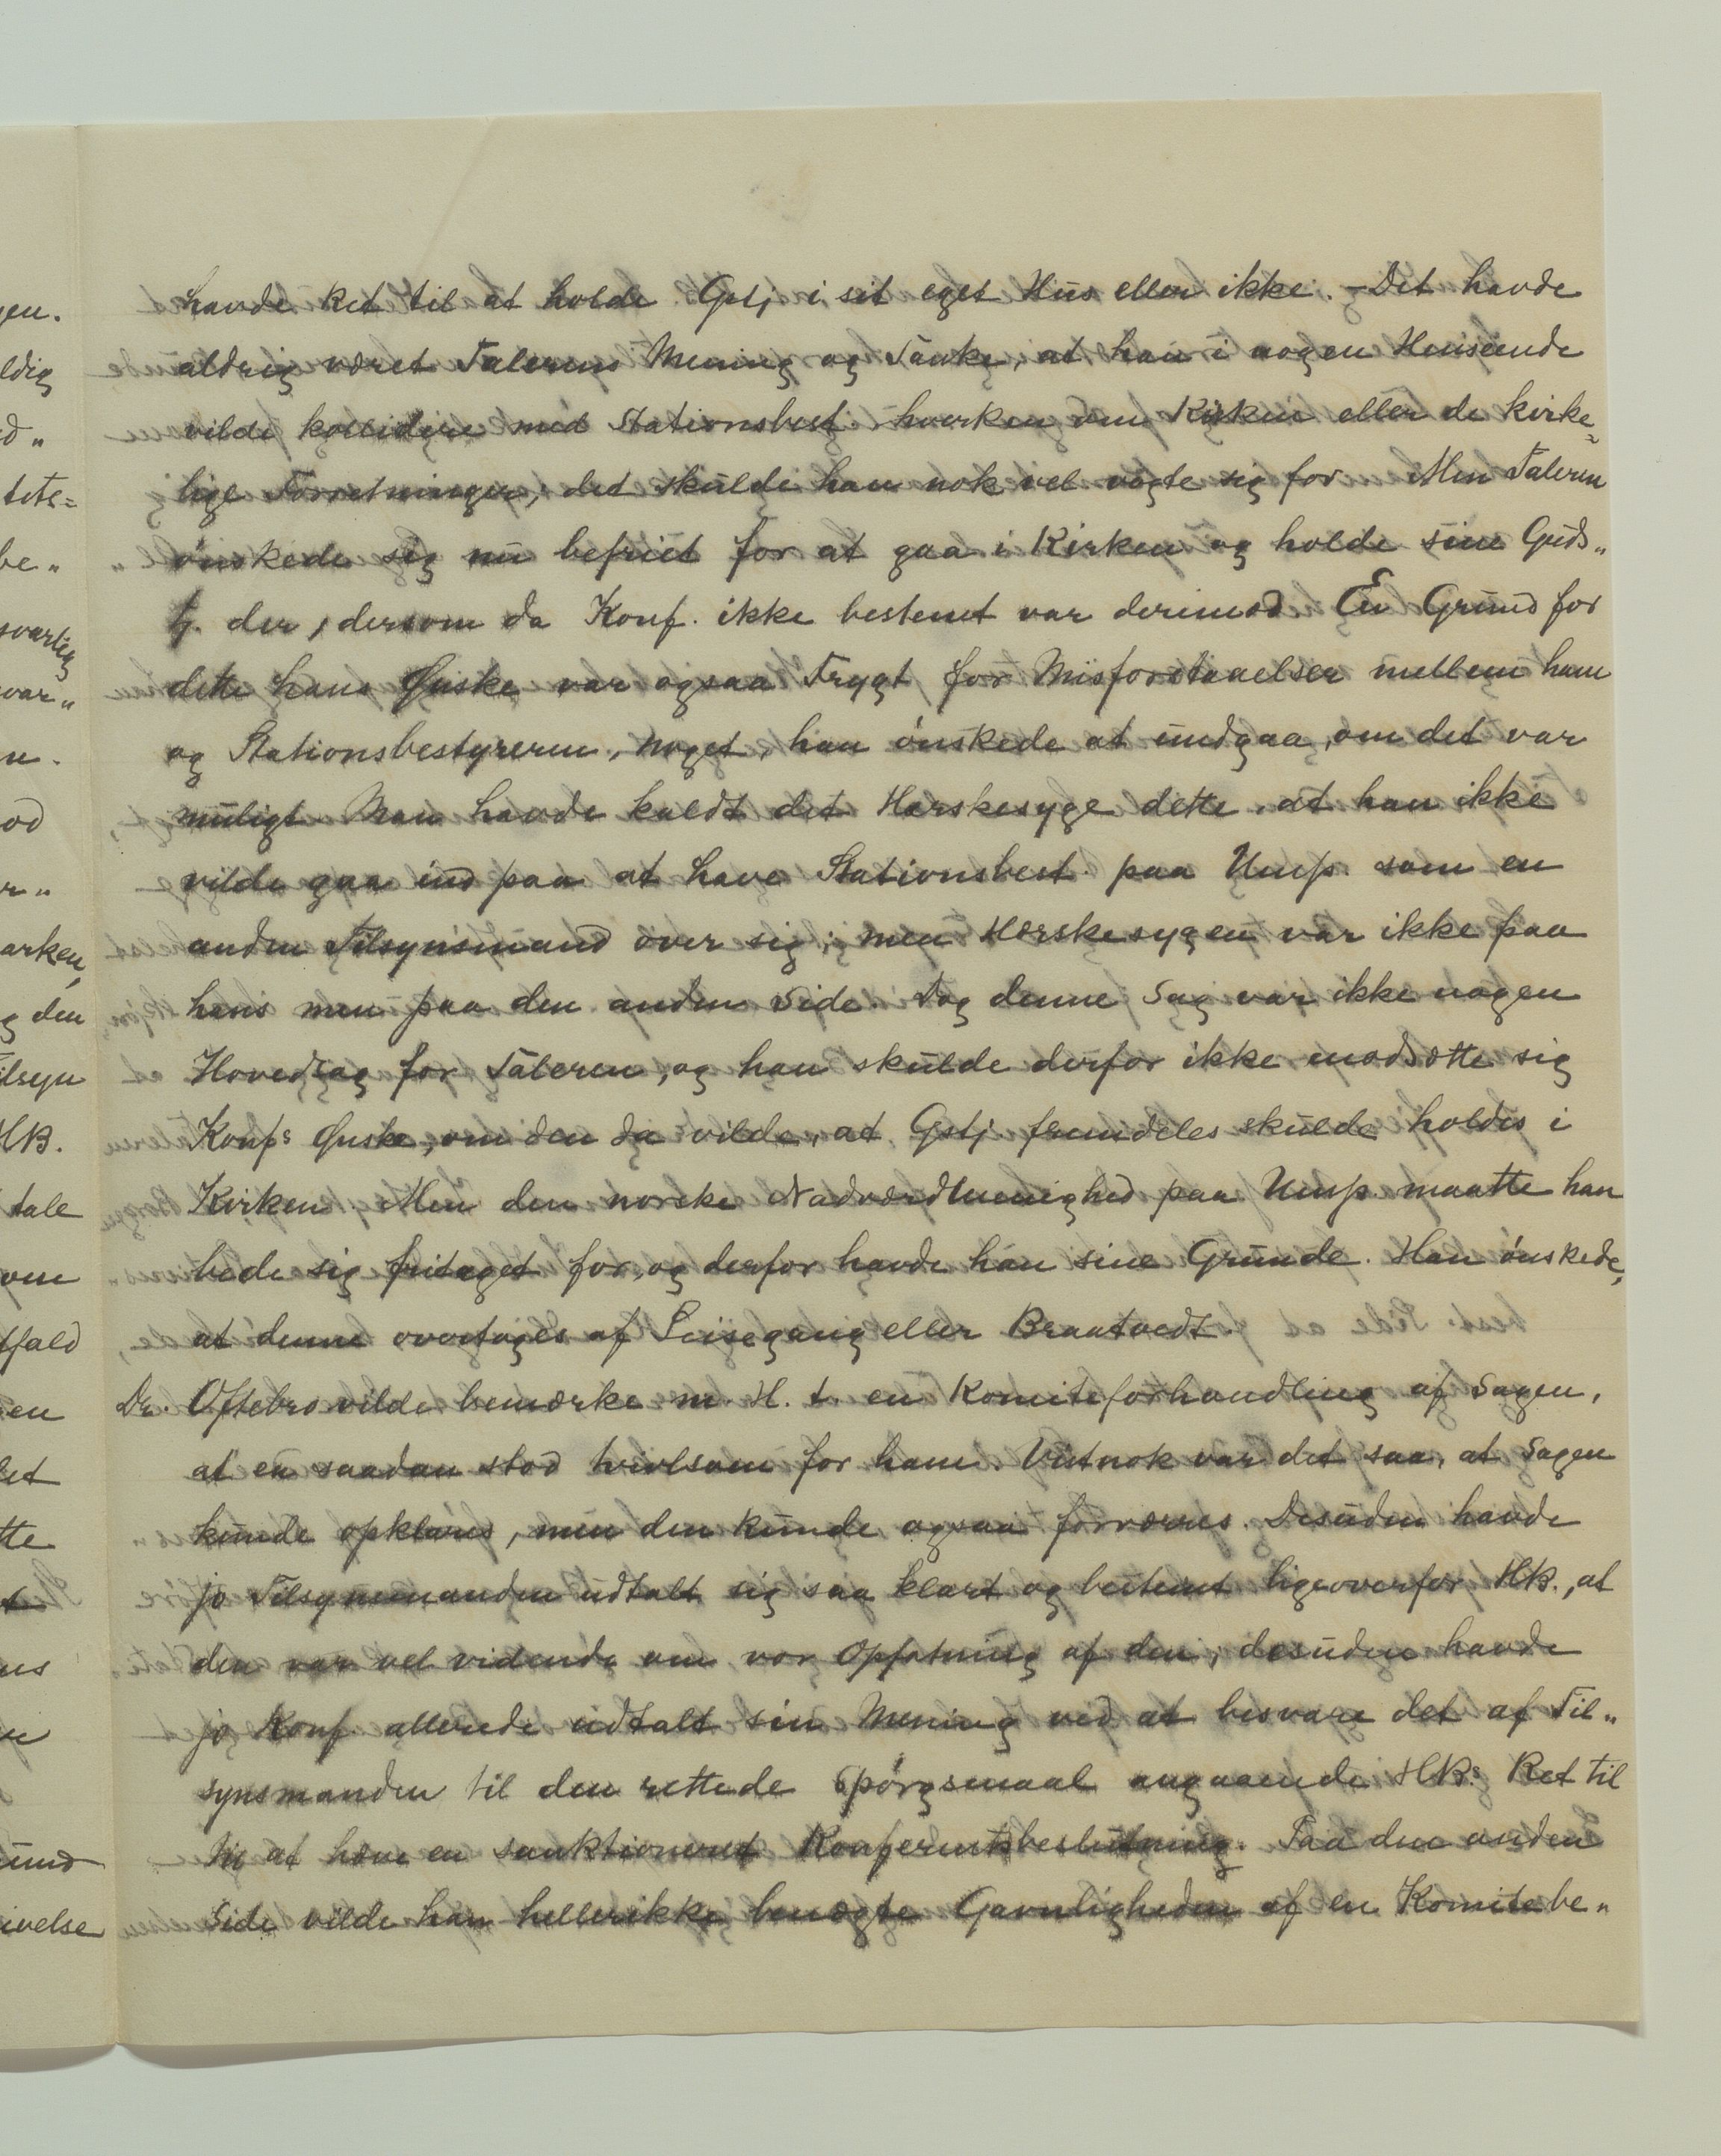 havde Ret til at holde Gstj i sit eget Hus eller ikke. - Det havde
aldrig været Talerens Mening og Tanke, at han i nogen Henseende
vilde kollidere med Stationsbest hverken om Kirken eller de kirke=
lige Forretninger, det skulde han nok vel vogte sig for Men Taleren
ønskede sig nu befriet for at gaa i Kirken og holde sine Guds„
tj. der, dersom da Konf. ikke bestemt var derimod. En Grund for
dette hans Ønske var ogsaa Frygt for Misforstaaelser mellem ham
og Stationsbestyreren, noget, han ønskede at undgaa, om det var
muligt Man havde kaldt det Herskesyge dette, at han ikke
vilde gaa ind paa at have Stationsbest. paa Ump. som en
anden Tilsynsmand over sig; men Herskesygen var ikke paa
hans men paa den anden Side. Dog denne Sag var ikke nogen
Hovedsag for Taleren, og han skulde derfor ikke modsætte sig
Konfs Ønske, om den da vilde, at Gstj. fremdeles skulde holdes i
Kirken. Men den norske Nadverdmenighed paa Ump. maatte han
bede sig fritaget for, og derfor havde han sine Grunde. Han ønskede,
at denne overtages af Leisegang eller Braatvedt.
Dr. Oftebro vilde bemærke m. H. t. en Komiteforhandling af Sagen,
at en saadan stod tvivlsom for ham. Vistnok var det saa, at Sagen
kunde opklares, men den kunde ogsaa forværres. Desuden havde
jo Tilsynsmanden udtalt sig saa klart og bestemt ligeoverfor HB., at
den var vel vidende om vor Opfatning af den; desuden havde
jo Konf. allerede udtalt sin Mening ved at besvare det af Til„
synsmanden til den rettede Spørgsmaal angaaende HBs Ret til
til at hæve en sanktioneret Konferentsbeslutning. Paa den anden
Side vilde han hellerikke benægte Gavnligheden af en Komitebe„